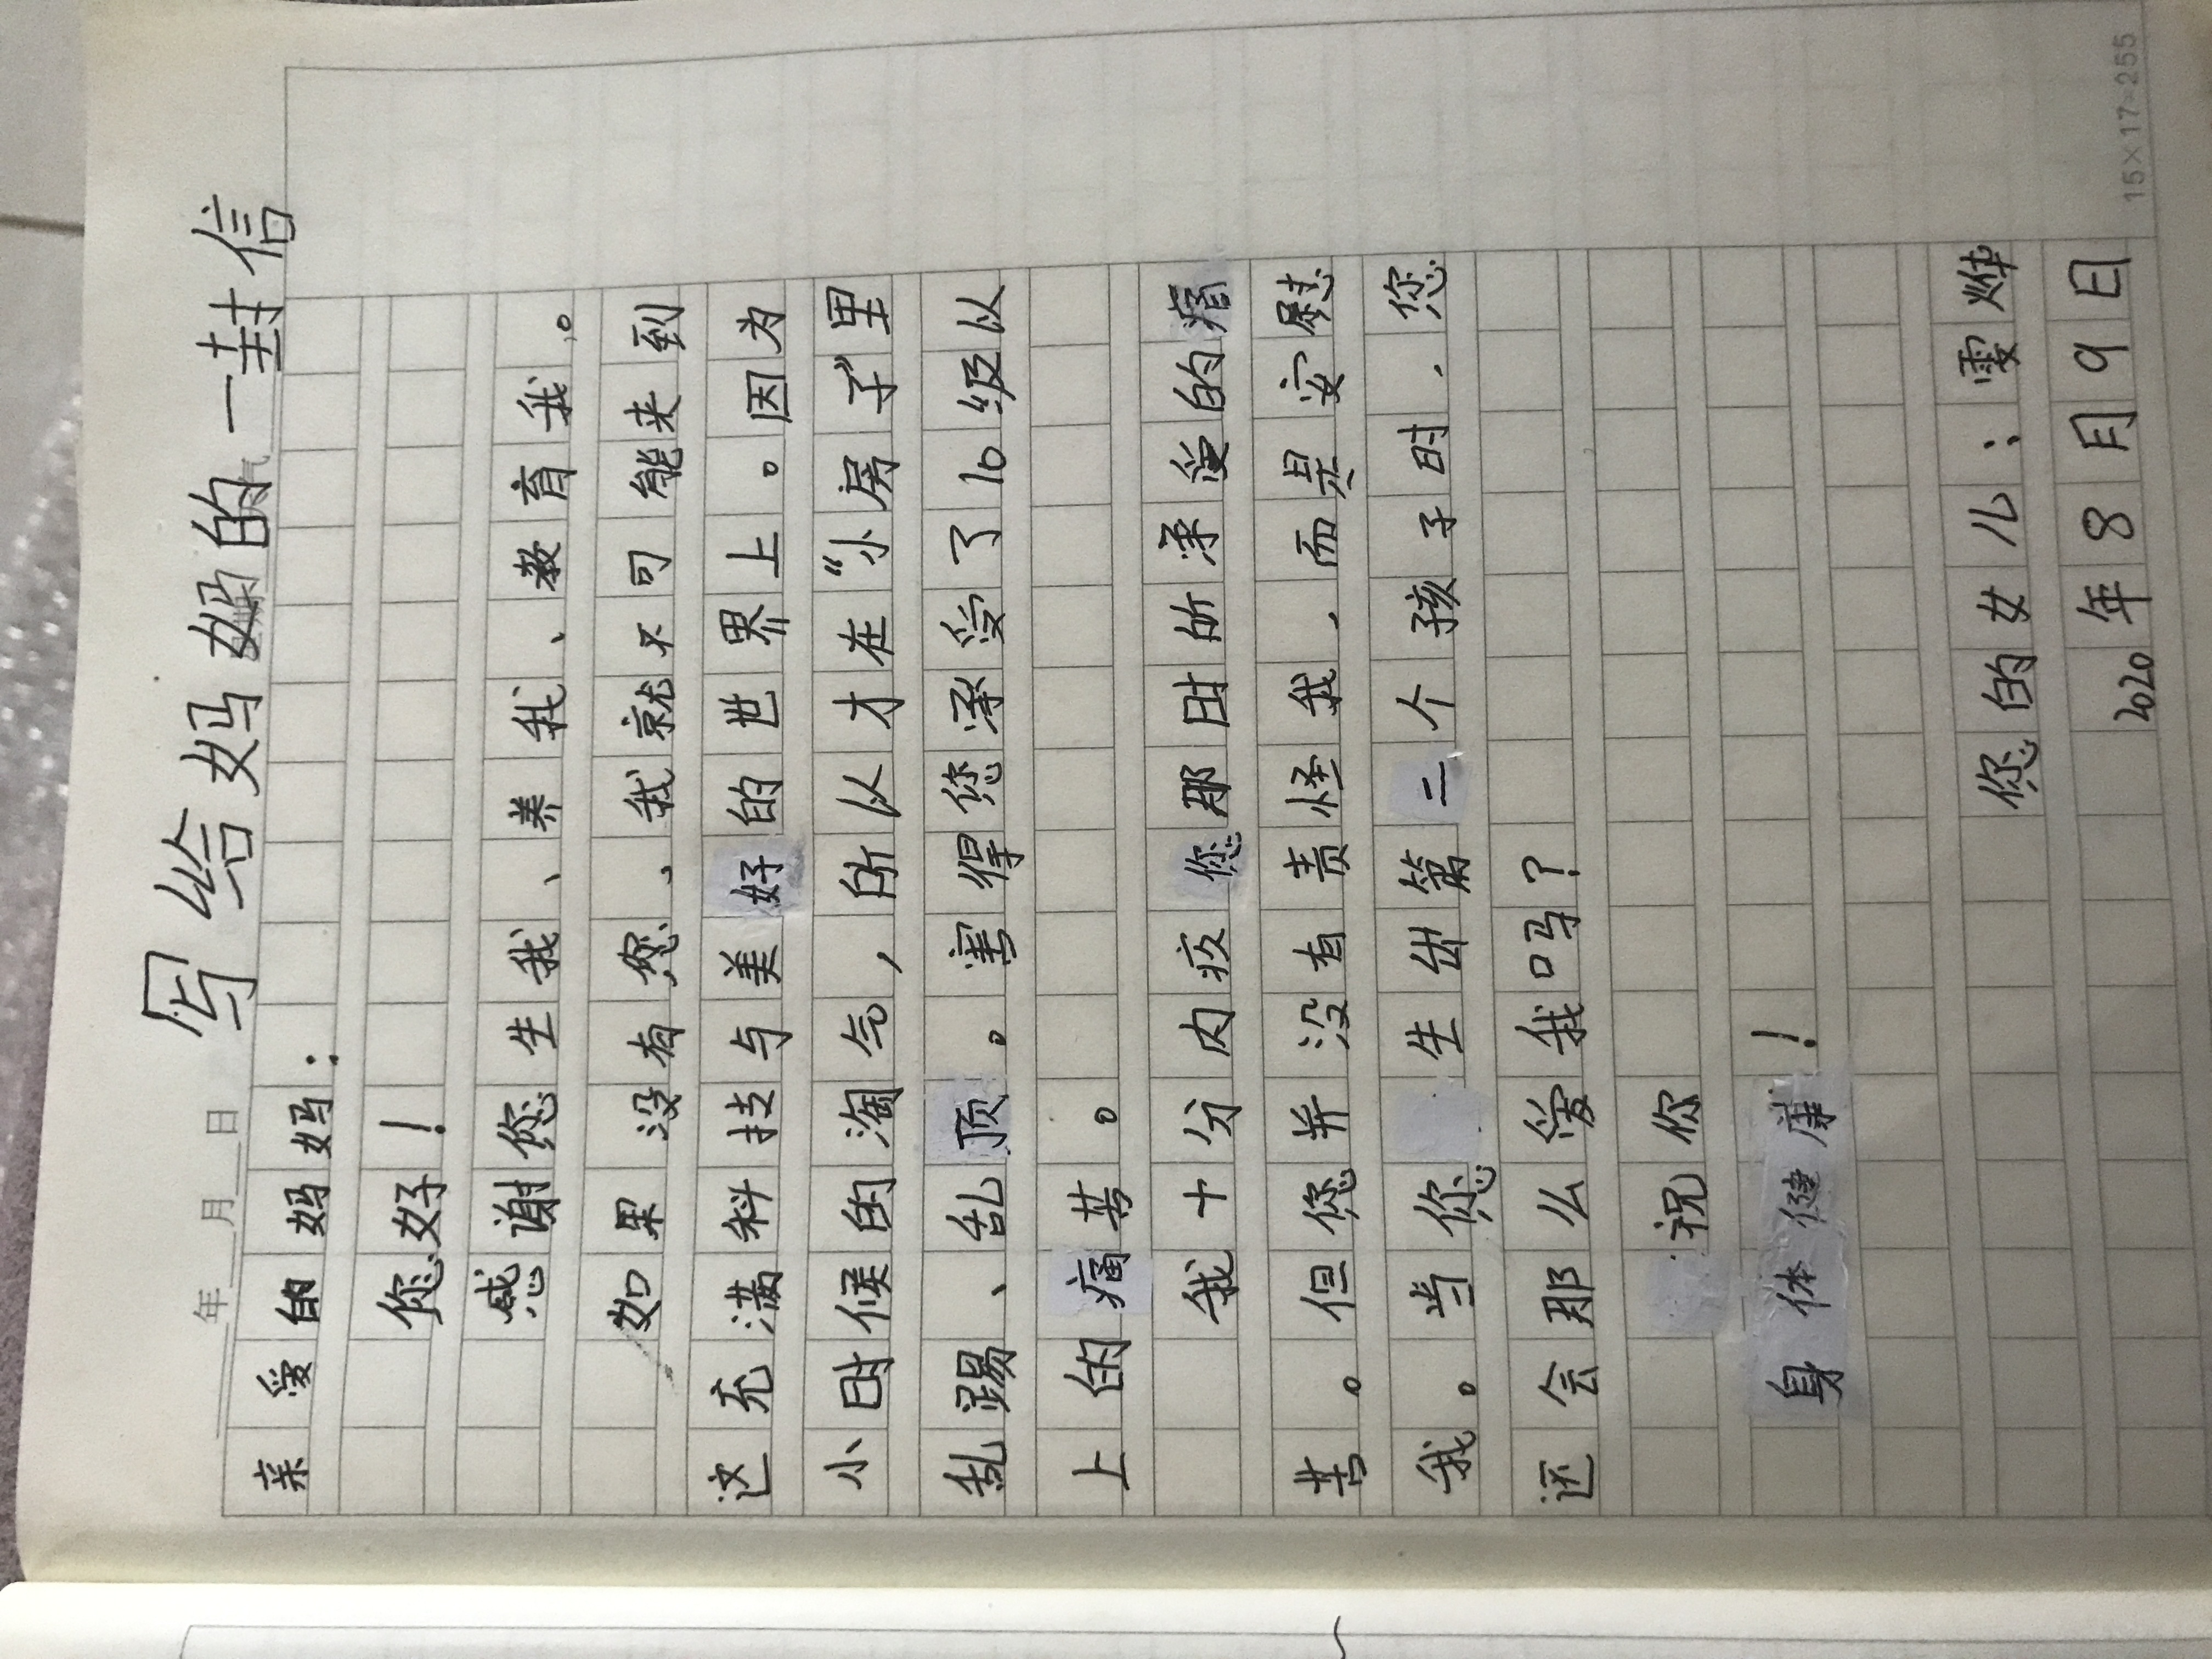 写给妈妈的一封信
年 月 日
亲爱的妈妈：
您好！
感谢您生我、养我、教育我。
如果没有您、我就不可能来到
这充满科技与美好的世界上。因为
小时候的淘气，所以才在“小房子”里
乱踢、乱顶。害得您承受了10级以
上的痛苦。
我十分内疚您那时所承受的痛
苦。但您并没有责怪我，而是安慰
我。当您生出第二个孩子时，您
还会那么爱我吗？
祝你
身体健康！
您的女儿：雯烨
2020年8月9日
15×17=255